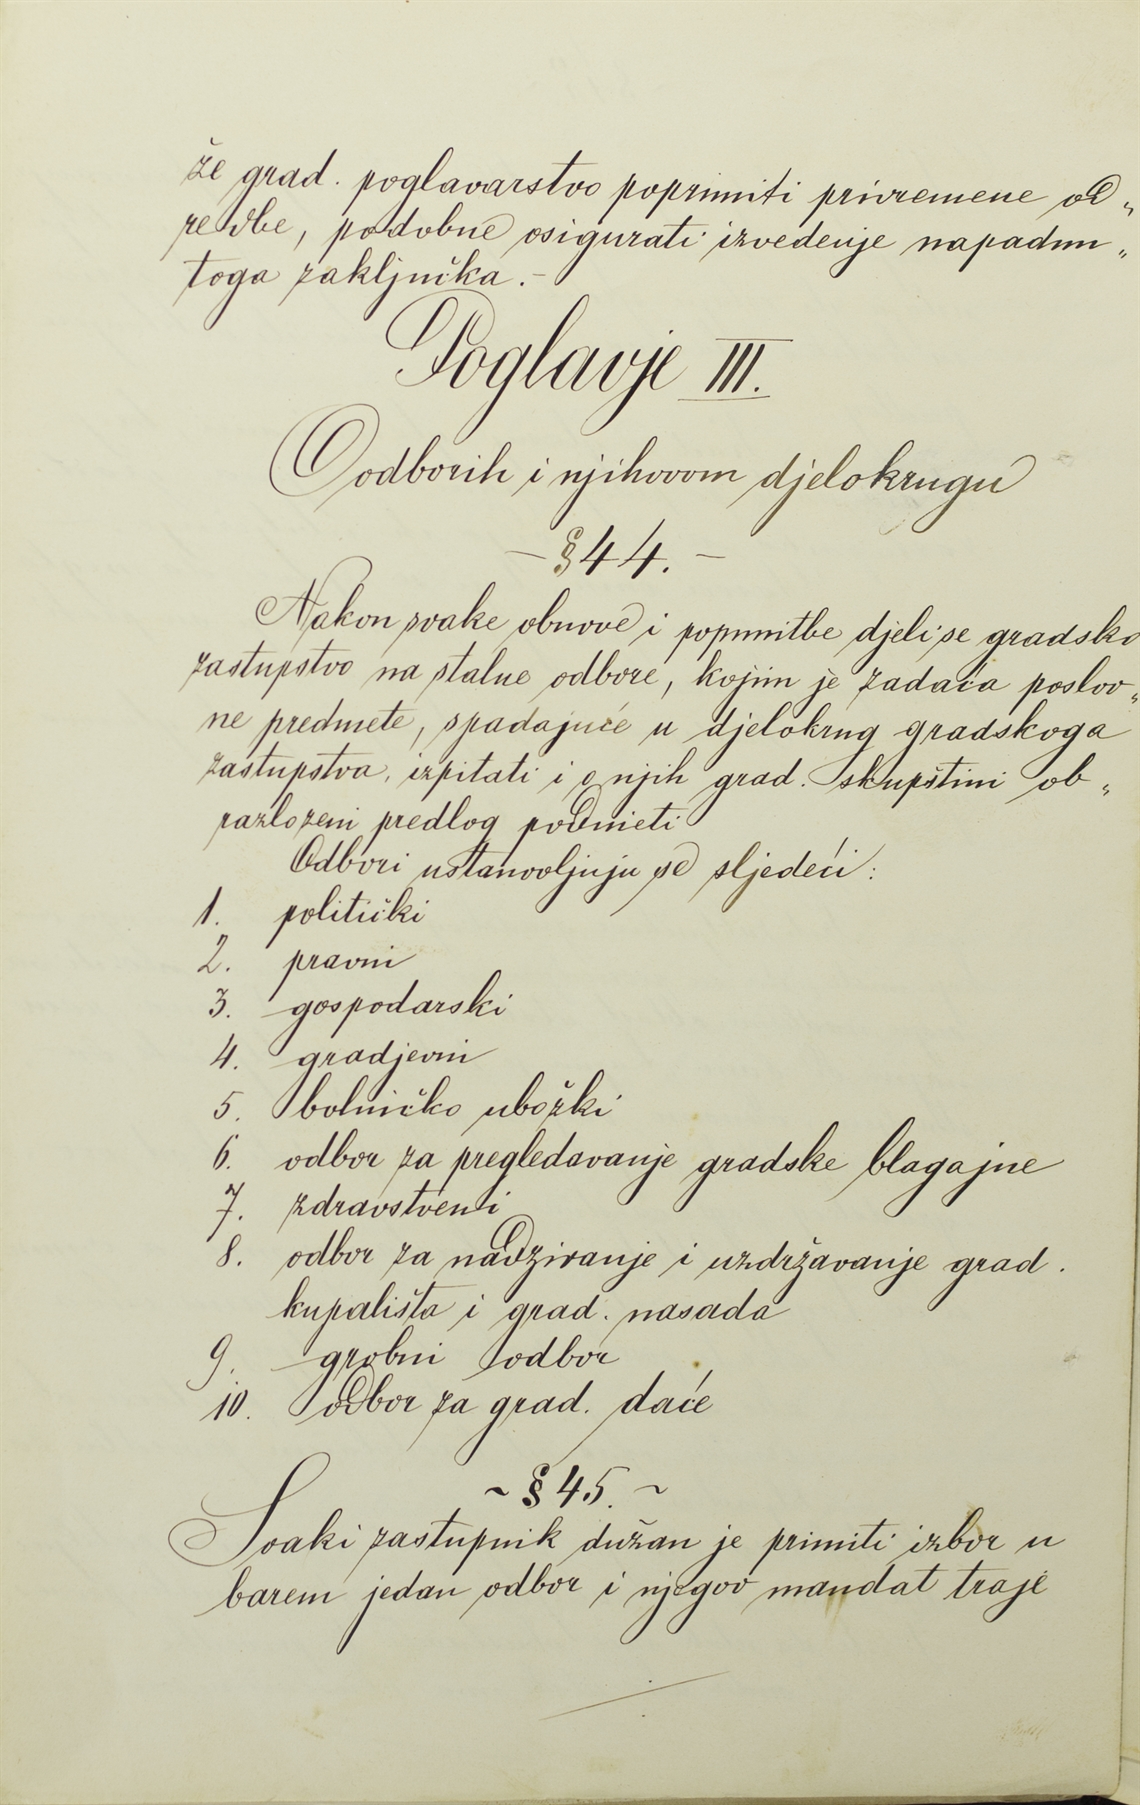 že grad. poglavarstvo poprimiti privremene od„
redbe, podobne osigurati izvedenje napadnu„
toga zaključka.–
Poglavje III.
O odborih i njihovom djelokrugu
– § 44. –
Nakon svake obnove i popunitbe djeli se gradsko
zastupstvo na stalne odbore, kojim je zadaća poslov„
ne predmete, spadajuće u djelokrug gradskoga
zastupstva, izpitati i o njih grad. skupštini ob„
razloženi predlog podnieti
Odbori ustanovljuju se sljedeći:
1. politički
2. pravni
3. gospodarski
4. gradjevni
5. bolničko ubožki
6. odbor za pregledavanje gradske blagajne
7. zdravstveni
8. odbor za nadziranje i uzdržavanje grad.
kupališta i grad. nasada
9. grobni odbor
10. odbor za grad. daće
~ § 45. ~
Svaki zastupnik dužan je primiti izbor u
barem jedan odbor i njegov mandat traje